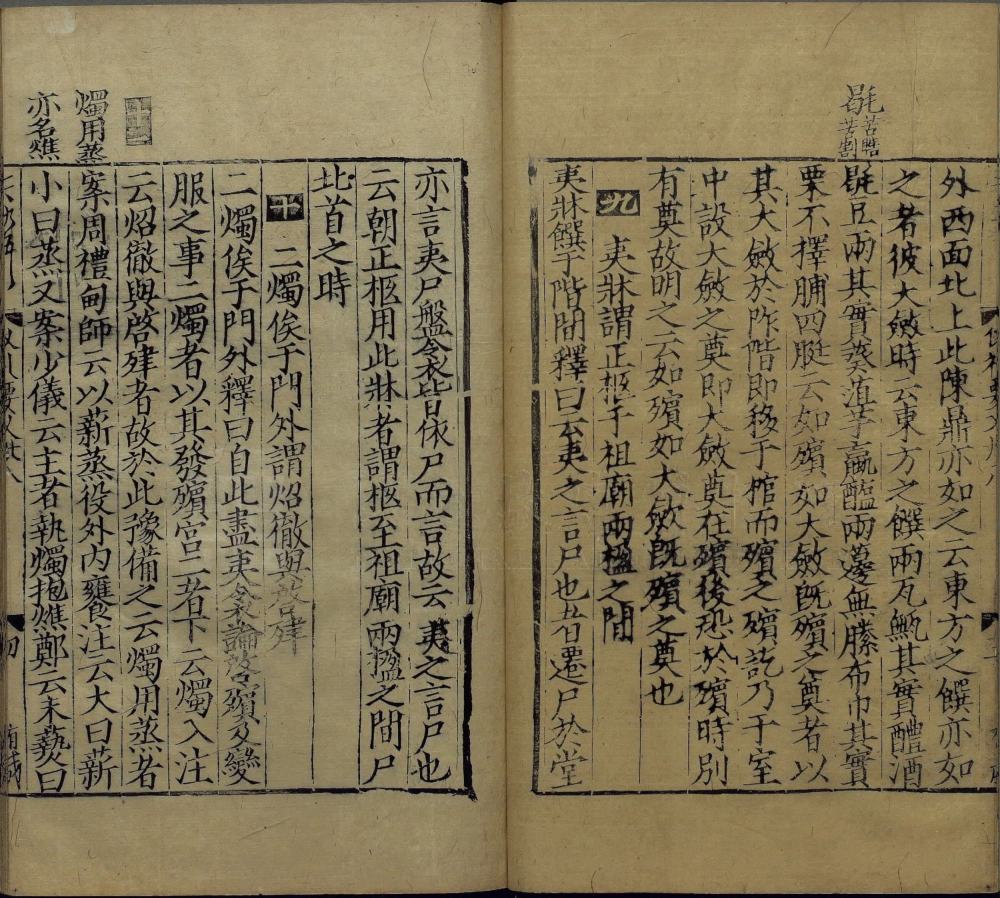 外西面北上此陳鼎亦如之云東方之饌亦如
之者彼大斂時云東方之饌兩瓦甒其實醴酒
毼豆兩其實葵菹芋蠃醢兩籩無縢布巾其實
栗不擇脯四脡云如殯如大斂既殯之奠者以
其大斂於阼階即移于棺而殯之殯訖乃于室
中設大斂之奠即大斂奠在殯後恐於殯時別
有奠故明之云如殯如大斂既殯之奠也
九 夷牀謂正柩于祖廟兩楹之間
夷牀饌于階間釋曰云夷之言尸也者遷尸於堂
毼苦
苦割
亦言夷尸盤衾皆依尸而言故云夷之言尸也
云朝正柩用此牀者謂柩至祖廟兩楹之間尸
北首之時
十 二燭俟于門外謂炤徹與啓肂
二燭俟于門外釋曰自此盡夷衾論啓殯及變
服之事二燭者以其發殯宮二者下云燭入注
云炤徹與啓肂者故於此豫備之云燭用蒸者
案周禮甸師云以薪蒸役外内饔食注云大曰薪
小曰蒸又案少儀云主者執燭抱燋鄭云未爇曰
燭用蒸
亦名燋